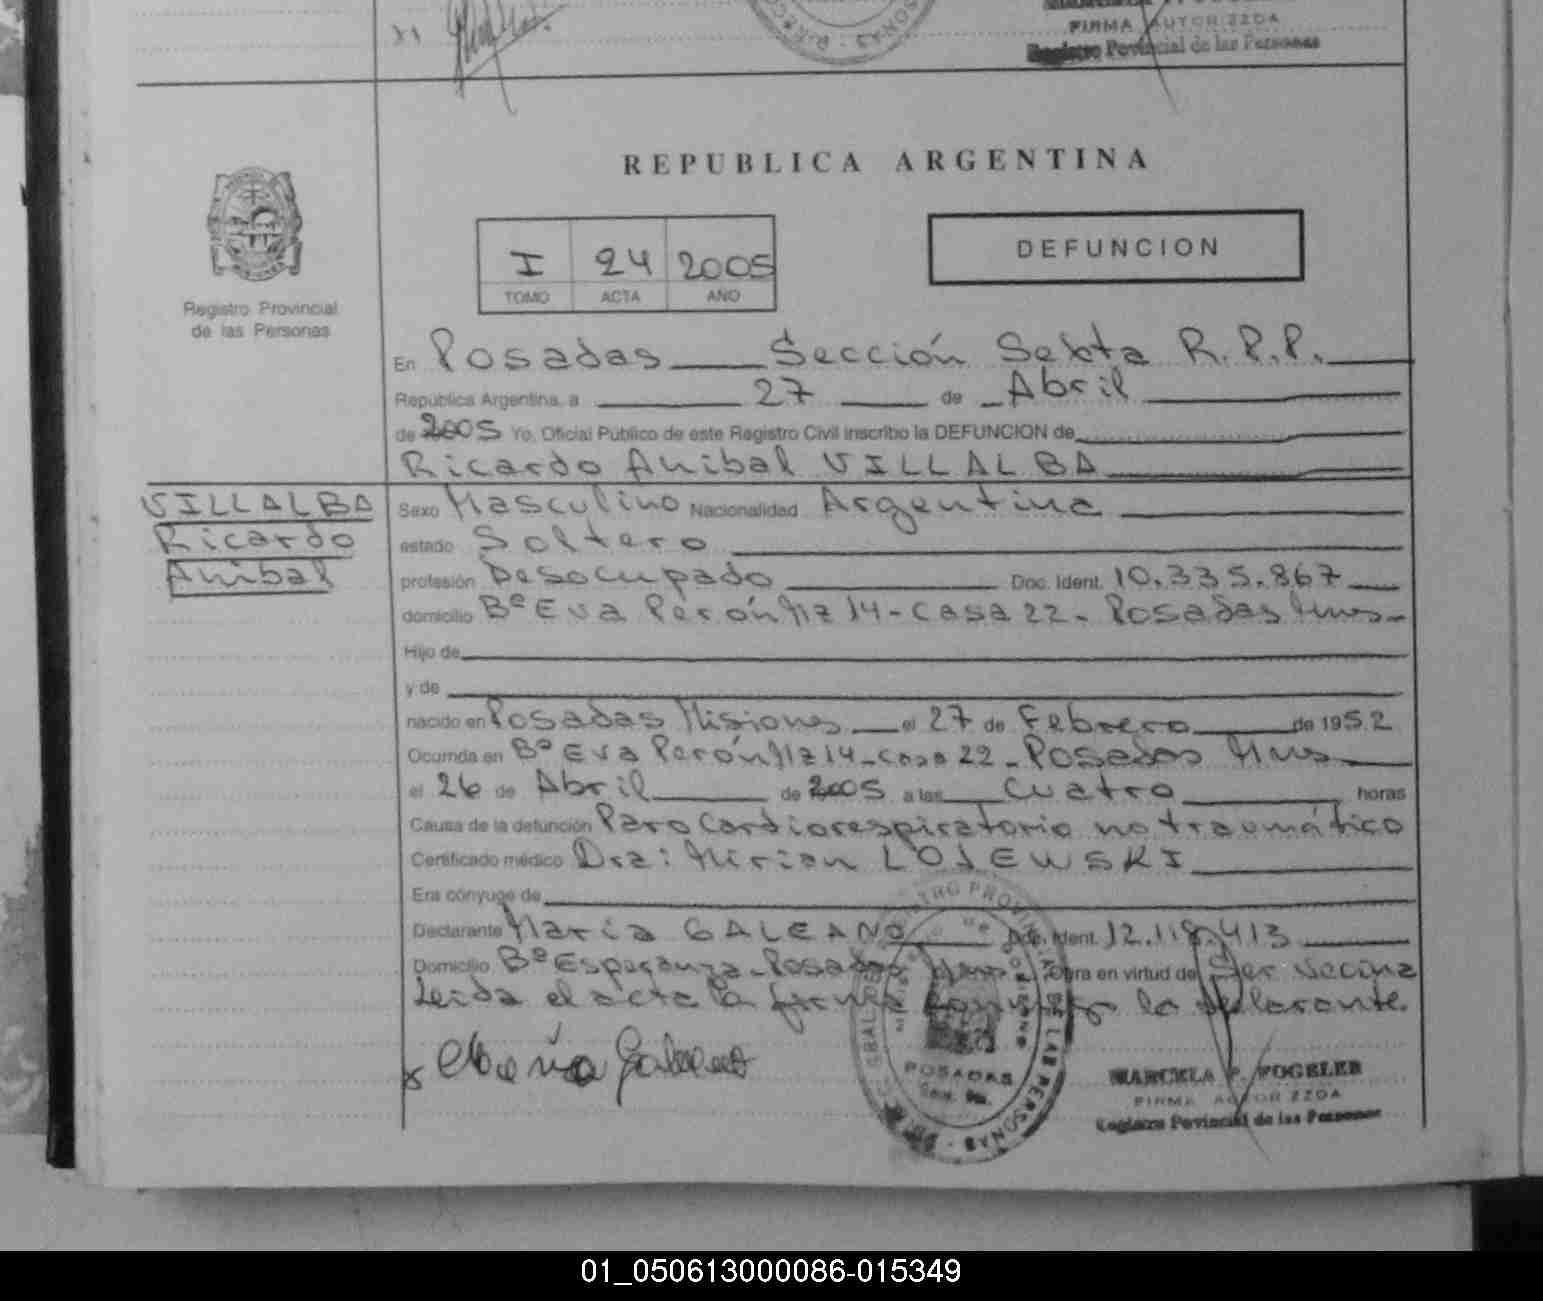 FIRMA AUTORIZZDA
Registro Provincial de las Personas
REPUBLICA ARGENTINA
I 24 2005
TOMO ACTA AÑO
DEFUNCION
Registro Provincial
de las Personas
En Posadas Sección Sexta R.P.P.
República Argentina, a 27 de Abril
de 2005 Yo, Oficial Público de este Registro Civil inscribo la DEFUNCION de
Ricardo Anibal VILLALBA
VILLALBA
Ricardo
Anibal
Sexo Masculino Nacionalidad Argentina
estado Soltero
profesión Desocupado Doc. Ident. 10.335.867
domicilio Bº Eva Perón Mz 14 - Casa 22 - Posadas Mnes-
Hijo de
y de
nacido en Posadas Misiones el 27 de Febrero de 1952
Ocurrida en Bº Eva Perón Mz 14 - Casa 22 - Posadas Mnes
el 26 de Abril de 2005 a las cuatro horas
Causa de la defunción Paro Cardiorespiratorio no traumático
Certificado médico Dra: Mirian LOJEWSKI
Era cónyuge de
Declarante María GALEANO Doc. Ident. 12.118.413
Domicilio Bº Esperanza - Posadas Mnes Obra en virtud de Ser vecina
Leida el acta la firma conmigo la declarante.
x María Galeano
POSADAS
MARCELA P. VOGELER
FIRMA AUTORIZZDA
Registro Provincial de las Personas
01_050613000086-015349